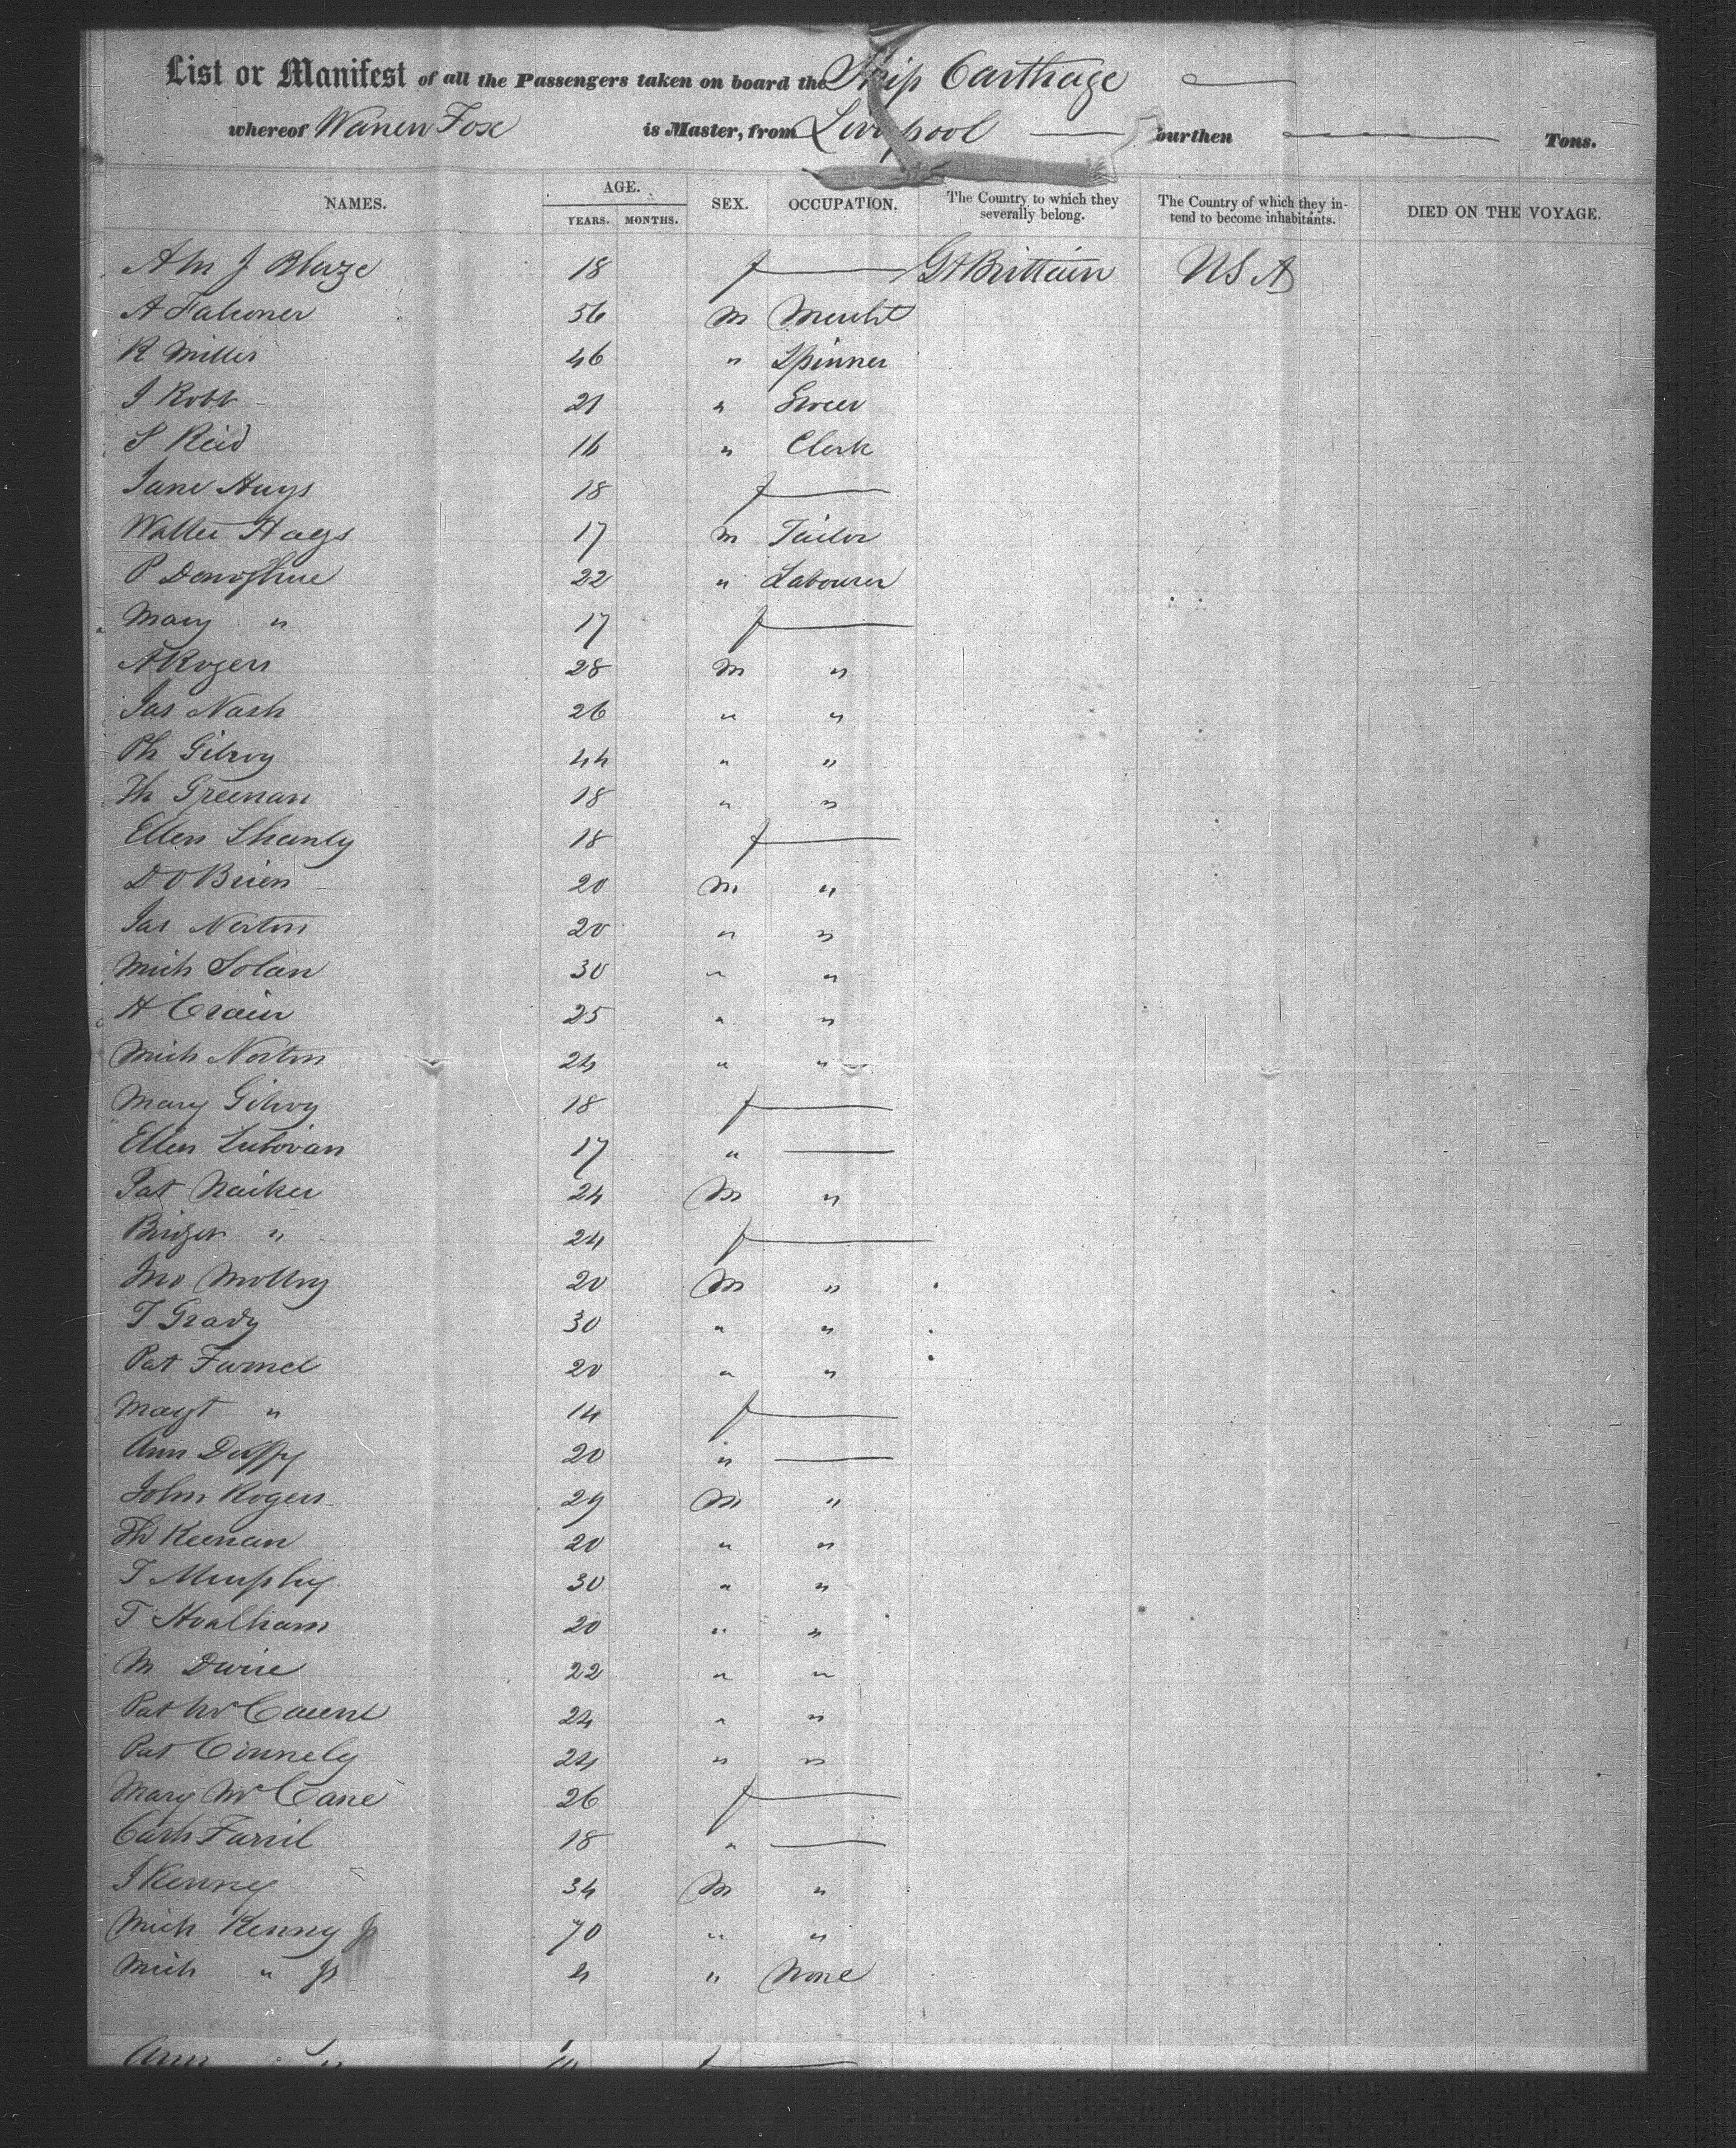 List or Manifest of all the Passengers taken on board the Ship Carthage
whereof Warren Fox is Master, from Liverpool ourthen Tons.
NAMES. AGE. YEARS. MONTHS. SEX. OCCUPATION. The Country to which they severally belong. The Country of which they intend to become inhabitants. DIED ON THE VOYAGE.
J 18 f Gt Brittain USA
A Falconer 56 M Mercht
R Miller 46 " Spinner
J Robb 21 "
S Reid 16 " Clerk
Jane Hays 18 f
Walter Hays 17 M Tailor
P Donoghue 22 " Labourer
Mary " 17 f
A Rogers 28 M "
Jas Nash 26 " "
Ph Gilroy 44 " "
Th Greenan 18 " "
Ellen Shanly 18 f
D O Brien 20 M "
Jas Norton 20 " "
Mich Solan 30 " "
H Crain 25 " "
Mich Norton 24 " "
Mary Gilroy 18 f
Ellen 17 "
Pat 24 M "
Bridget " 24 f
Jno Molloy 20 M "
T Grady 30 " "
Pat 20 " "
Magt " 14 f
Ann Duffy 20 "
John Rogers 29 M "
Th Keenan 20 " "
T Murphy 30 " "
T 20 " "
M Dwire 22 " "
Pat Mc 24 " "
Pat Connely 24 " "
Mary Mc Cane 26 f
Cath Farril 18 "
J Kenny 34 M "
Mich Kenny 70 " "
Mich " Jr 4 " None
Ann "